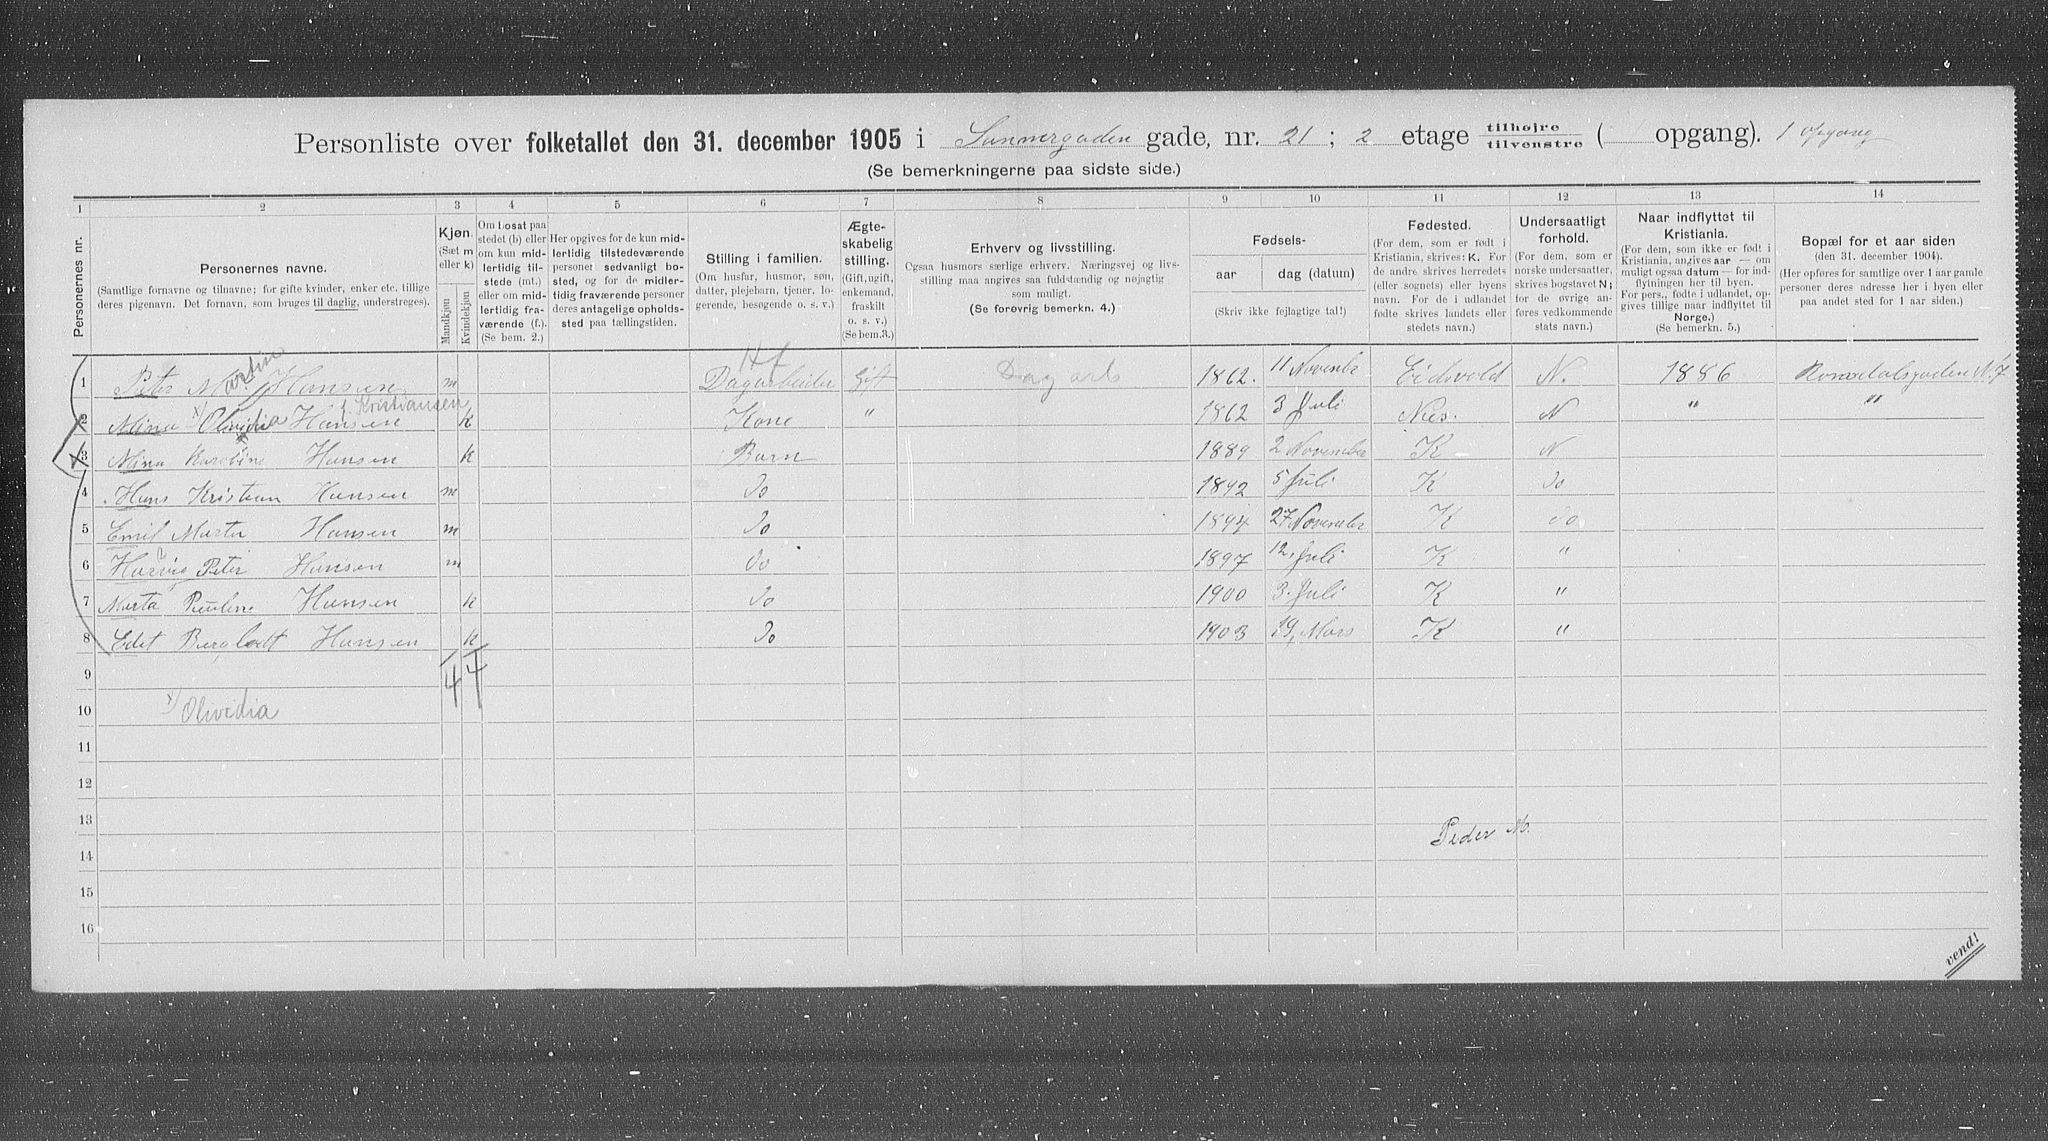 Personliste over folketallet den 31. december 1905 i Sannergaden gade, nr. 21 ; 2 etage tilhøjre tilvenstre ( opgang). 1 opgang
(Se bemerkningerne paa sidste side.)
1 2 3 4 5 6 7 8 9 10 11 12 13 14
Personernes nr.
Personernes navne.
(Samtlige fornavne og tilnavne; for gifte kvinder, enker etc. tillige
deres pigenavn. Det fornavn, som bruges til daglig, understreges).
Kjøn.
(Sæt m
eller k)
Mandkjøn
Kvindekjøn
Om bosat paa
stedet (b) eller
om kun mid-
lertidig til-
stede (mt.)
eller om mid-
lertidig fra-
værende (f.).
(Se bem. 2.)
Her opgives for de kun mid-
lertidig tilstedeværende
personer sedvanligt bo-
sted, og for de midler-
tidig fraværende personer
deres antagelige opholds-
sted paa tællingstiden.
Stilling i familien.
(Om husfar, husmor, søn,
datter, plejebarn, tjener, lo-
gerende, besøgende o. s. v.)
Ægte-
skabelig
stilling.
(Gift, ugift,
enkemand,
fraskilt
o. s. v.)
(Se bem.3.)
Erhverv og livsstilling.
Ogsaa husmors særlige erhverv. Næringsvej og livs-
stilling maa angives saa fuldstændig og nøjagtig
som muligt.
(Se forøvrig bemerkn. 4.)
Fødsels-
aar dag (datum)
(Skriv ikke fejlagtige tal!)
Fødested.
(For dem, som er født i
Kristiania, skrives: K. For
de andre skrives herredets
(eller sognets) eller byens
navn. For de i udlandet
fødte skrives landets eller
stedets navn.)
Undersaatligt
forhold.
(For dem, som er
norske undersaatter,
skrives bogstavet N;
for de øvrige an-
føres vedkommende
stats navn.)
Naar indflyttet til
Kristiania.
(For dem, som ikke er født i
Kristiania, angives aar — om
muligt ogsaa datum — for ind-
flyttningen her til byen.
For pers., fødte i udlandet, op-
gives tillige naar indflyttet til
Norge.)
(Se bemerkn. 5.)
Bopæl for et aar siden
(den 31. december 1904).
(Her opføres for samtlige over 1 aar gamle
personer deres adresse her i byen eller
paa andet sted for 1 aar siden.)
1 Peter Martin Hansen m Hf Dagarbeider Gift Dag arb 1862. 11 Novembr Eidsvold N. 1886 Romsdalsgaden No 7
f. Kristiansen
2 Mina x) Olividia Hansen k Kone " 1862 3 Juli Nes. N " "
3 Mina Karoline Hansen k Barn 1889 2 November K N
4 Hans Kristian Hansen m Do 1892 5 Juli K Do
5 Emil Martin Hansen m Do 1894 27 November K do
6 Peter Hansen m Do 1897 12, Juli K "
7 Marta Pauline Hansen k Do 1900 3. Juli K "
8 Edit Hansen k Do 1903 19, Mars K "
4 4
9
10 x) Olividia
11
12
13
Peder M.
14
15
16
vend!